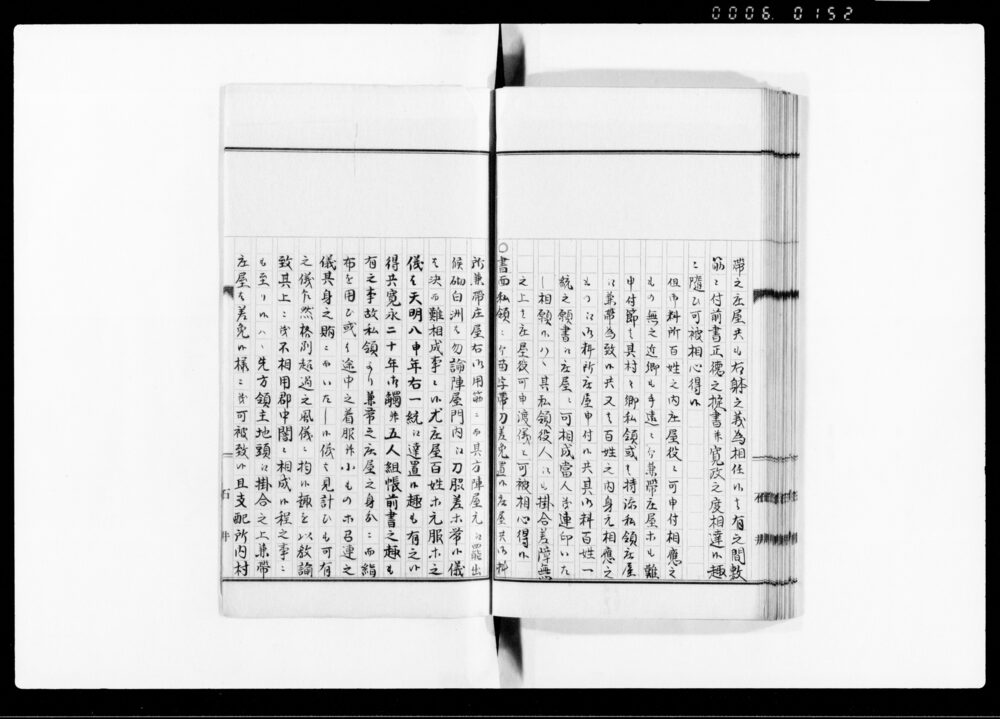 0006 0152
帶之庄屋共も右躰之義為相任候而も有之間敷
筋ニ付前書正德之掟書并寛政之度相達候趣
ニ隨ひ可被相心得候
但御料所百姓之内庄屋役ニ可申付相應之
もの無之近鄕も手遠ニ而兼帶庄屋等も難
申付節は其村之鄕私領或は持添私領庄屋
江兼帶為致候共又は百姓之内身元相應之
もの江御料所庄屋申付候共其御料百姓一
統之願書江庄屋ニ可相成當人より連印いた
し相願候ハヽ其私領役人江も掛合差障無
之上は庄屋役可申渡儀と可被相心得候
〇書面私領ニ而苗字帶刀差免置候庄屋共御料
所兼帶庄屋右御用筋ニ而其方陣屋元江罷出
候砌白洲は勿論陣屋門内江刀脇差等帶候儀
は決而難相成事ニ候尤庄屋百姓等元服等之
儀は天明八申年右一統江達置候趣も有之候
得共寛永二十年御觸并五人組帳前書之趣も
有之事故私領より兼帶之庄屋之身分ニ而絹
布を用ひ或は途中之着服并小もの等召連之
儀其身之賄ニいたし候儀は見計ひも可有
之儀乍然格別超過之風儀ニ拘候趣を以敎諭
致其上ニ茂不相用郡中闇と相成候程之事ニ
も至り候ハヽ先方領主地頭江掛合之上兼帶
庄屋は差免候樣ニ茂可被致候且支配所内村
石井